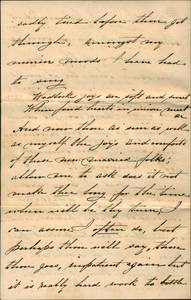 sadly tired before they got
through, amongst my
various moods I have had
to sing
Wedded joys are soft and sweet
When fond hearts in union meet
And now thou as seen as well
as myself the joys, and comforts
of these new married folks;
allow me to ask does it not
make thee long for the time
when will be thy turn I
can assure I often do, but
perhaps thou will say, there
thou goes, impatient again but
it is really hard work to